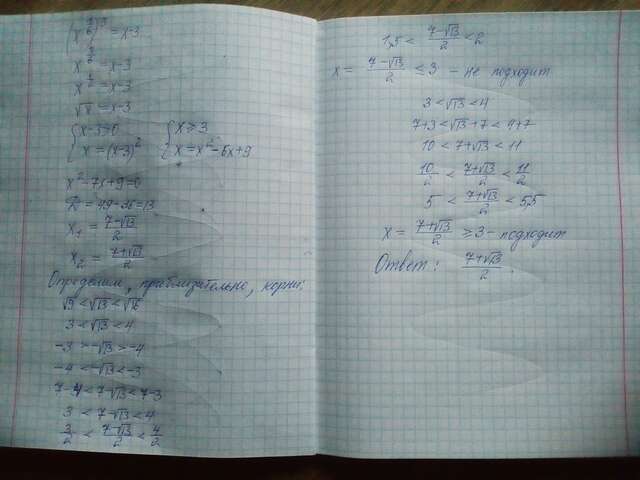 (x^{1/6})^3 = x-3
x^{3/6} = x-3
x^{1/2} = x-3
√x = x-3
{x-3≥0 {x≥3
{x=(x-3)² {x=x²-6x+9
x²-7x+9=0
D=49-36=13
x₁ = (7-√13)/2
x₂ = (7+√13)/2
Определим, приблизительно, корни:
√9 < √13 < √16
3 < √13 < 4
-3 > -√13 > -4
-4 < -√13 < -3
7-4 < 7-√13 < 7-3
3 < 7-√13 < 4
3/2 < (7-√13)/2 < 4/2
1,5 < (7-√13)/2 < 2
x = (7-√13)/2 ≤ 3 - не подходит
3 < √13 < 4
7+3 < √13+7 < 4+7
10 < 7+√13 < 11
10/2 < (7+√13)/2 < 11/2
5 < (7+√13)/2 < 5,5
x = (7+√13)/2 ≥ 3 - подходит
Ответ: (7+√13)/2.